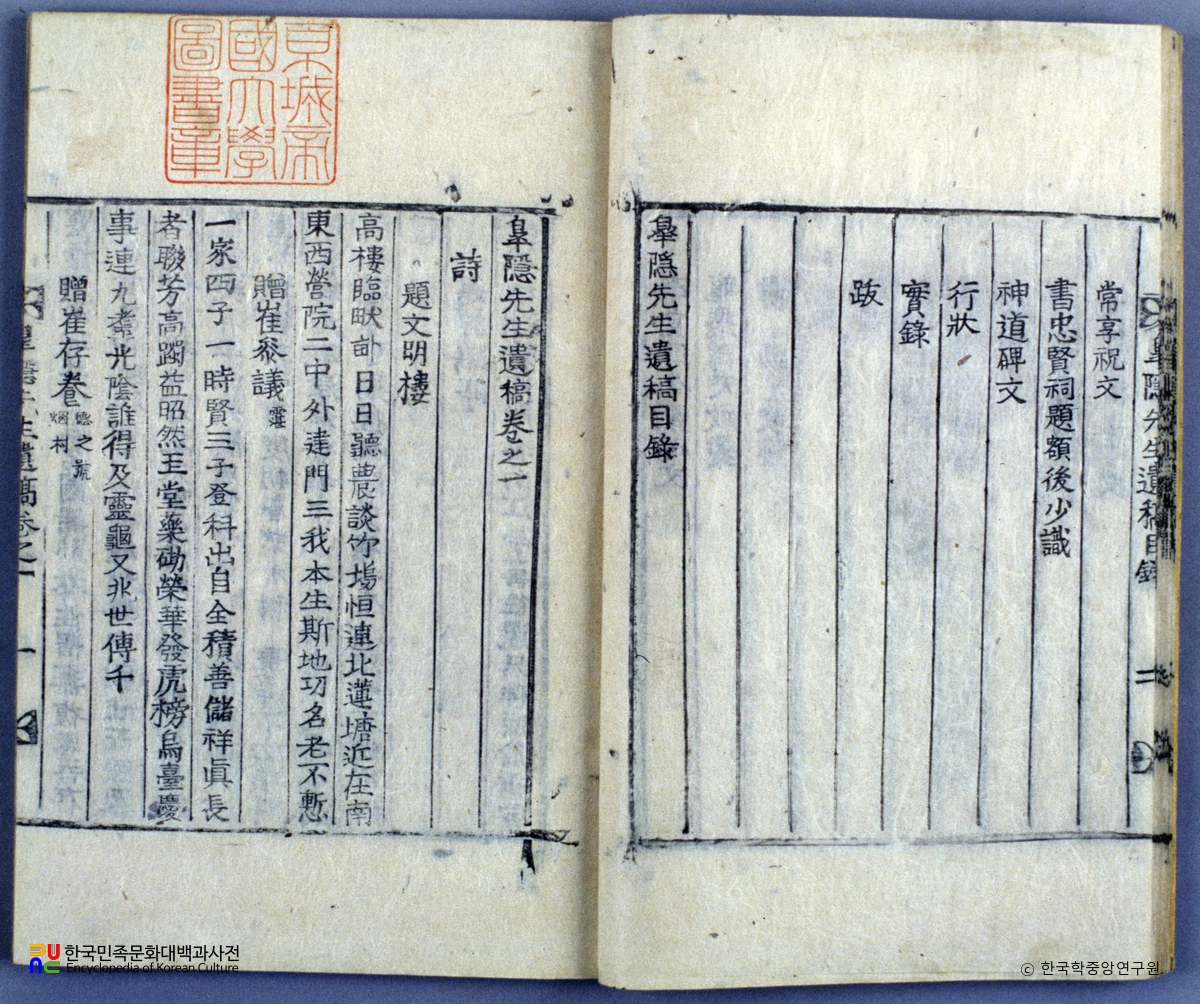 常享祝文
書忠賢祠題額後少識
神道碑文
行狀
實錄
跋
皐隱先生遺稿目錄
皐隱先生遺稿目錄
二
京城帝
國大學
圖書章
皐隱先生遺稿卷之一
詩
題文明樓
高樓臨畎畝日日聽農談竹塲恒連北蓮塘近在南
東西營院二中外建門三我本生斯地功名老不慙
贈崔叅議霮
一家西子一時賢三子登科出自全積善儲祥眞長
者聯芳高躅益昭然玉堂藥砌榮華發虎榜烏臺慶
事連九耋光陰誰得及靈龜又兆世傳千
贈崔存養德之號
烟村
皐隱先生遺稿卷之一
一
한국민족문화대백과사전
Encyclopedia of Korean Culture
ⓒ 한국학중앙연구원